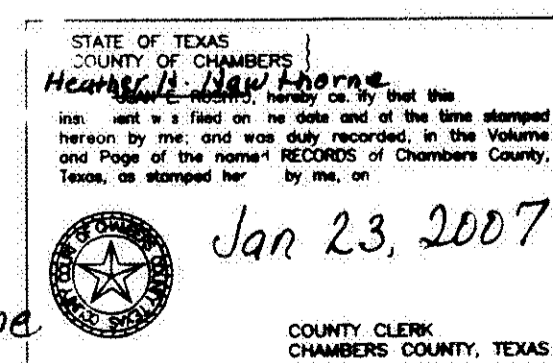 STATE OF TEXAS
COUNTY OF CHAMBERS }
Heather H. Hawthorne
hereby ce ify that this
ins ent w s filed on he date and at the time stamped
hereon by me; and was duly recorded, in the Volume
and Page of the named RECORDS of Chambers County,
Texas, as stamped her by me, on
Jan 23, 2007
COUNTY COURT OF CHAMBERS COUNTY TEXAS
COUNTY CLERK
CHAMBERS COUNTY, TEXAS